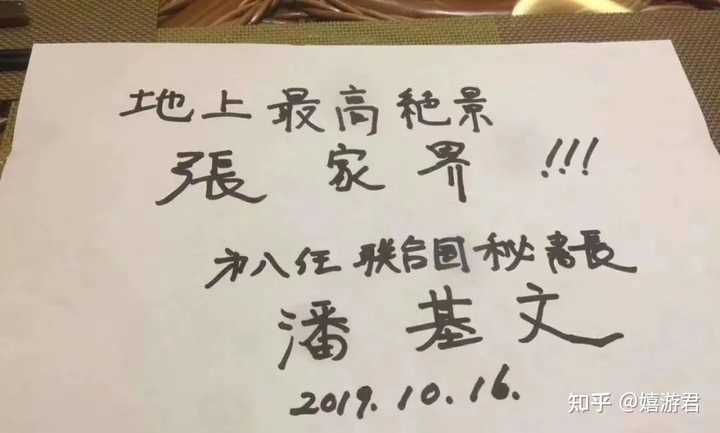 地上最高絶景
張家界!!!
第八任联合国秘書長
潘基文
2019.10.16.
知乎 @嬉游君